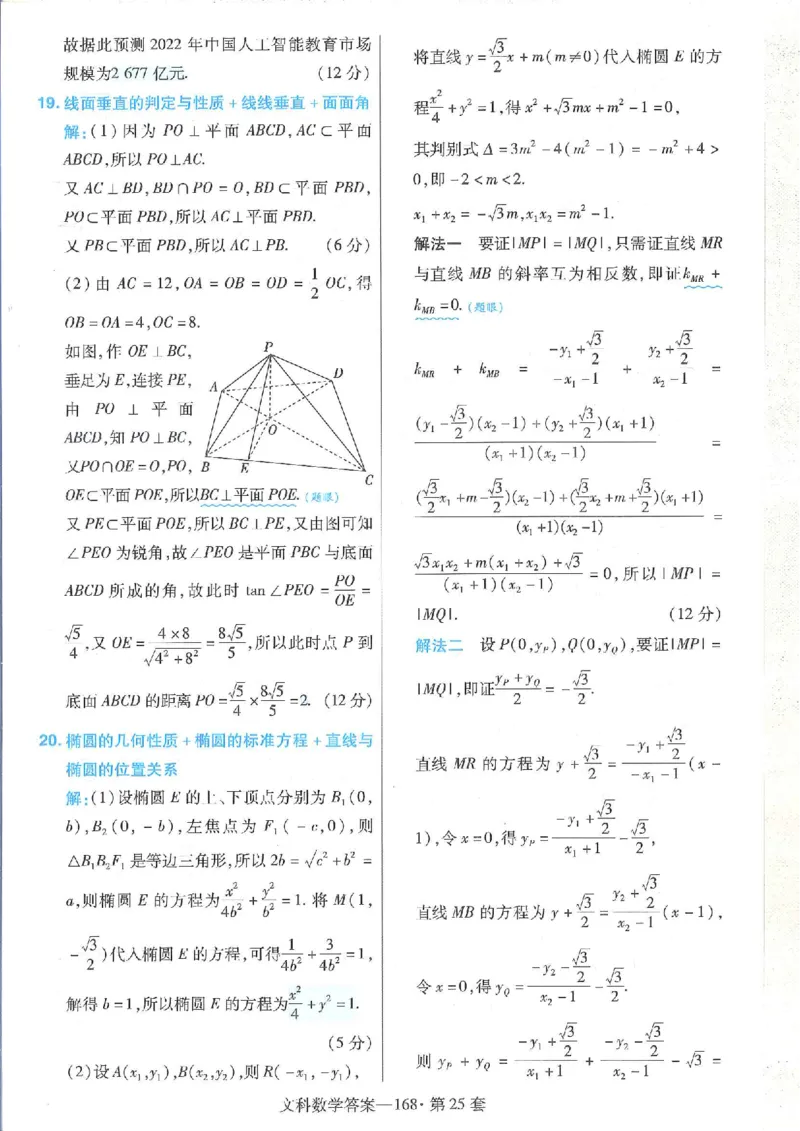 故据此预测 2022 年中国人工智能教育市场
规模为2 677 亿元. (12 分)
19. 线面垂直的判定与性质 + 线线垂直 + 面面角
解:(1) 因为 PO ⊥ 平面 ABCD, AC ⊂ 平面
ABCD,所以 PO⊥AC.
又 AC ⊥ BD, BD ∩ PO = O, BD ⊂ 平面 PBD,
PO⊂平面 PBD,所以 AC⊥平面 PBD.
又 PB⊂平面 PBD,所以 AC⊥PB. (6 分)
(2) 由 AC = 12, OA = OB = OD = 1/2 OC, 得
OB = OA = 4, OC = 8.
如图,作 OE ⊥ BC,
垂足为 E,连接 PE,
由 PO ⊥ 平面
ABCD,知 PO⊥BC,
又PO∩OE = O,PO,
OE⊂平面 POE,所以BC⊥平面 POE. (题眼)
P
A
D
O
B
E
C
又 PE⊂平面 POE,所以 BC⊥PE,又由图可知
∠PEO 为锐角,故∠PEO 是平面 PBC 与底面
ABCD 所成的角,故此时 tan∠PEO = PO/OE =
√5/4,又 OE = (4×8)/√(4²+8²) = 8√5/5,所以此时点 P 到
底面 ABCD 的距离 PO = √5/4 × 8√5/5 = 2. (12 分)
20. 椭圆的几何性质 + 椭圆的标准方程 + 直线与
椭圆的位置关系
解:(1)设椭圆 E 的上、下顶点分别为 B₁(0,
b),B₂(0, -b),左焦点为 F₁(-c,0),则
△B₁B₂F₁ 是等边三角形,所以 2b = √(c²+b²) =
a,则椭圆 E 的方程为 x²/4b² + y²/b² = 1. 将 M(1,
-√3/2)代入椭圆 E 的方程,可得 1/4b² + 3/4b² = 1,
解得 b = 1,所以椭圆 E 的方程为 x²/4 + y² = 1.
(5 分)
(2)设A(x₁,y₁),B(x₂,y₂),则R(-x₁,-y₁),
将直线 y = √3/2 x + m(m≠0)代入椭圆 E 的方
程 x²/4 + y² = 1,得 x² + √3mx + m² - 1 = 0,
其判别式 Δ = 3m² - 4(m² - 1) = -m² + 4 >
0,即 -2 < m < 2.
x₁ + x₂ = -√3m,x₁x₂ = m² - 1.
解法一 要证|MP| = |MQ|,只需证直线 MR
与直线 MB 的斜率互为相反数,即证k_MR +
k_MB = 0. (题眼)
k_MR + k_MB = (-y₁+√3/2)/(-x₁-1) + (y₂+√3/2)/(x₂-1) =
((y₁-√3/2)(x₂-1)+(y₂+√3/2)(x₁+1))/((x₁+1)(x₂-1)) =
((√3/2 x₁+m-√3/2)(x₂-1)+(√3/2 x₂+m+√3/2)(x₁+1))/((x₁+1)(x₂-1)) =
(√3x₁x₂+m(x₁+x₂)+√3)/((x₁+1)(x₂-1)) = 0,所以|MP| =
|MQ|. (12 分)
解法二 设 P(0,y_P),Q(0,y_Q),要证|MP| =
|MQ|,即证(y_P+y_Q)/2 = -√3/2.
直线 MR 的方程为 y + √3/2 = (-y₁+√3/2)/(-x₁-1) (x -
1),令 x = 0,得 y_P = (-y₁+√3/2)/(x₁+1) - √3/2,
直线 MB 的方程为 y + √3/2 = (y₂+√3/2)/(x₂-1) (x - 1),
令 x = 0,得 y_Q = (-y₂-√3/2)/(x₂-1) - √3/2.
则 y_P + y_Q = (-y₁+√3/2)/(x₁+1) + (-y₂-√3/2)/(x₂-1) - √3 =
文科数学答案—168·第 25 套